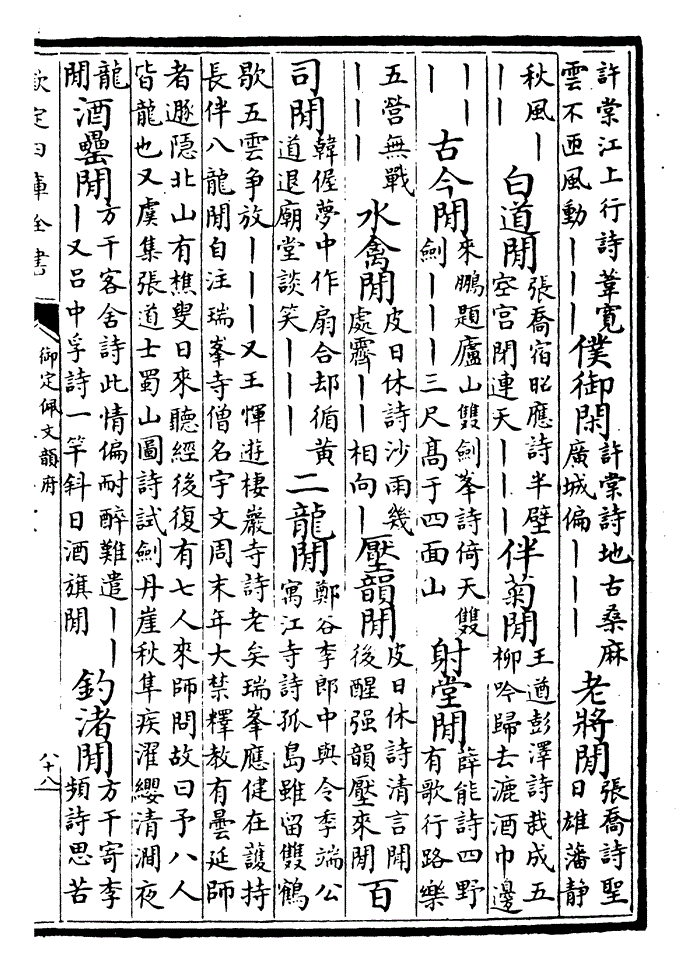 許棠江上行詩葦寛
雲不匝風動｜｜｜
僕御閑
許棠詩地古桑麻
廣城偏｜｜｜
老將閒
張喬詩聖
日雄藩靜
秋風｜
｜｜
白道閒
張喬宿昭應詩半壁
空宫閉連天｜｜｜
伴菊閒
王遒彭澤詩栽成五
柳吟歸去漉酒巾邊
｜｜
｜
古今閒
來鵬題廬山雙劍峯詩倚天雙
劍｜｜｜三尺髙于四面山
射堂閒
薛能詩四野
有歌行路樂
五營無戰
｜｜｜
水禽閒
皮日休詩沙雨幾
處霽｜｜相向｜
壓韻閒
皮日休詩清言聞
後醒强韻壓來閒
百
司閒
韓偓夢中作扇合却循黄
道退廟堂談笑｜｜｜
二龍閒
鄭谷李郎中與令季端公
寓江寺詩孤島雖留雙鶴
歇五雲争放｜｜｜又王惲遊棲巖寺詩老矣瑞峯應健在䕶持
長伴八龍閒自注瑞峯寺僧名宇文周末年大禁釋教有曇延師
者遯隠北山有樵叟日來聽經後復有七人來師問故曰予八人
皆龍也又虞集張道士蜀山圖詩試劍丹崖秋隼疾濯纓清澗夜
龍
閒
酒壘閒
方干客舍詩此情偏耐醉難遣｜｜
｜又吕中孚詩一竿斜日酒旗閒
釣渚閒
方干寄李
頻詩思苦
欽定四庫全書
御定佩文韻府
八十八